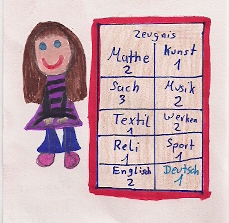 Zeugnis
Mathe Kunst
2 1
Sach Musik
3 2
Textil Werken
1 2
Reli Sport
1 1
Englisch Deutsch
2 1